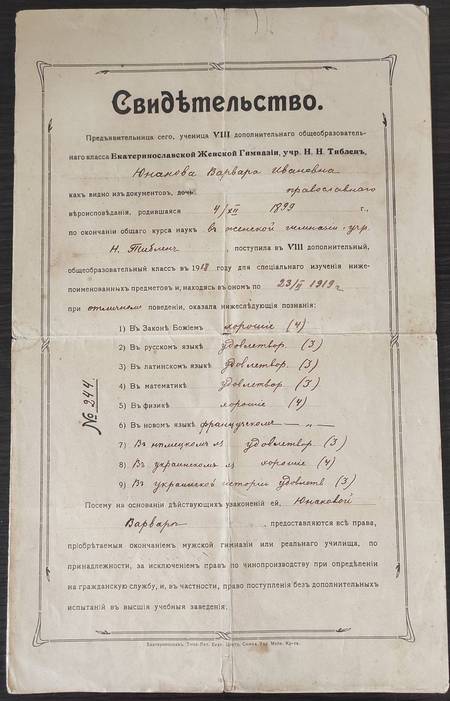 Свидѣтельство.
Предъявительница сего, ученица VIII дополнительнаго общеобразователь-
наго класса Екатеринославской Женской Гимназіи, учр. Н. Н. Тиблен,
Юнакова Варвара Ивановна
какъ видно изъ документовъ, дочь православнаго
вѣроисповѣданія, родившаяся 4/XII 1899 г.,
по окончаніи общаго курса наукъ въ женской гимназіи учр.
Н. Тибленъ, поступила въ VIII дополнительный,
общеобразовательный классъ въ 1918 году для спеціальнаго изученія ниже-
поименованныхъ предметовъ и, находясь въ ономъ по 23/II 1919 г.
при отличномъ поведеніи, оказала нижеслѣдующія познанія:
1) Въ Законѣ Божіемъ хорошіе (4)
2) Въ русскомъ языкѣ удовлетвор. (3)
3) Въ латинскомъ языкѣ удовлетвор. (3)
4) Въ математикѣ удовлетвор. (3)
5) Въ физикѣ хорошіе (4)
6) Въ новомъ языкѣ французскомъ — „ —
7) Въ нѣмецкомъ яз удовлетвор (3)
8) Въ украинскомъ яз хорошіе (4)
9) Въ украинской исторіи удовлетв (3)
№ 244
Посему на основаніи дѣйствующихъ узаконеній ей, Юнаковой
Варварѣ, предоставляются всѣ права,
пріобрѣтаемыя окончаніемъ мужской гимназіи или реальнаго училища, по
принадлежности, за исключеніемъ правъ по чинопроизводству при опредѣленіи
на гражданскую службу, и, въ частности, право поступленія безъ дополнительныхъ
испытаній въ высшія учебныя заведенія.